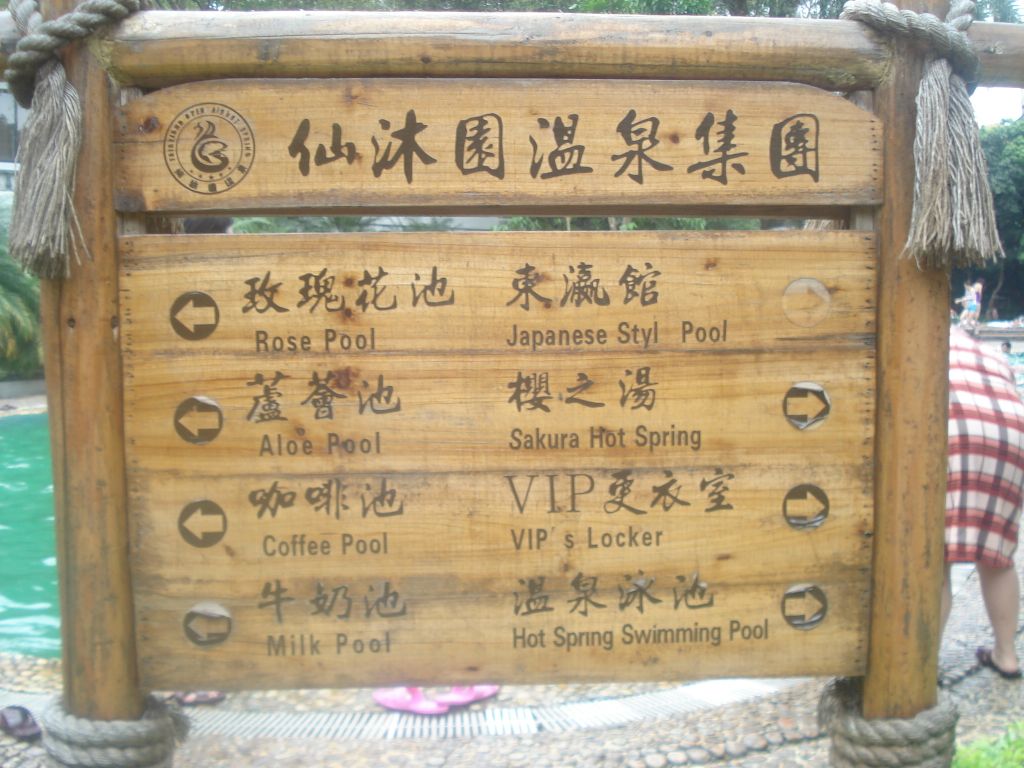 仙沐園温泉集團
玫瑰花池
Rose Pool
蘆薈池
Aloe Pool
咖啡池
Coffee Pool
牛奶池
Milk Pool
東瀛館
Japanese Styl Pool
櫻之湯
Sakura Hot Spring
VIP更衣室
VIP's Locker
温泉泳池
Hot Spring Swimming Pool